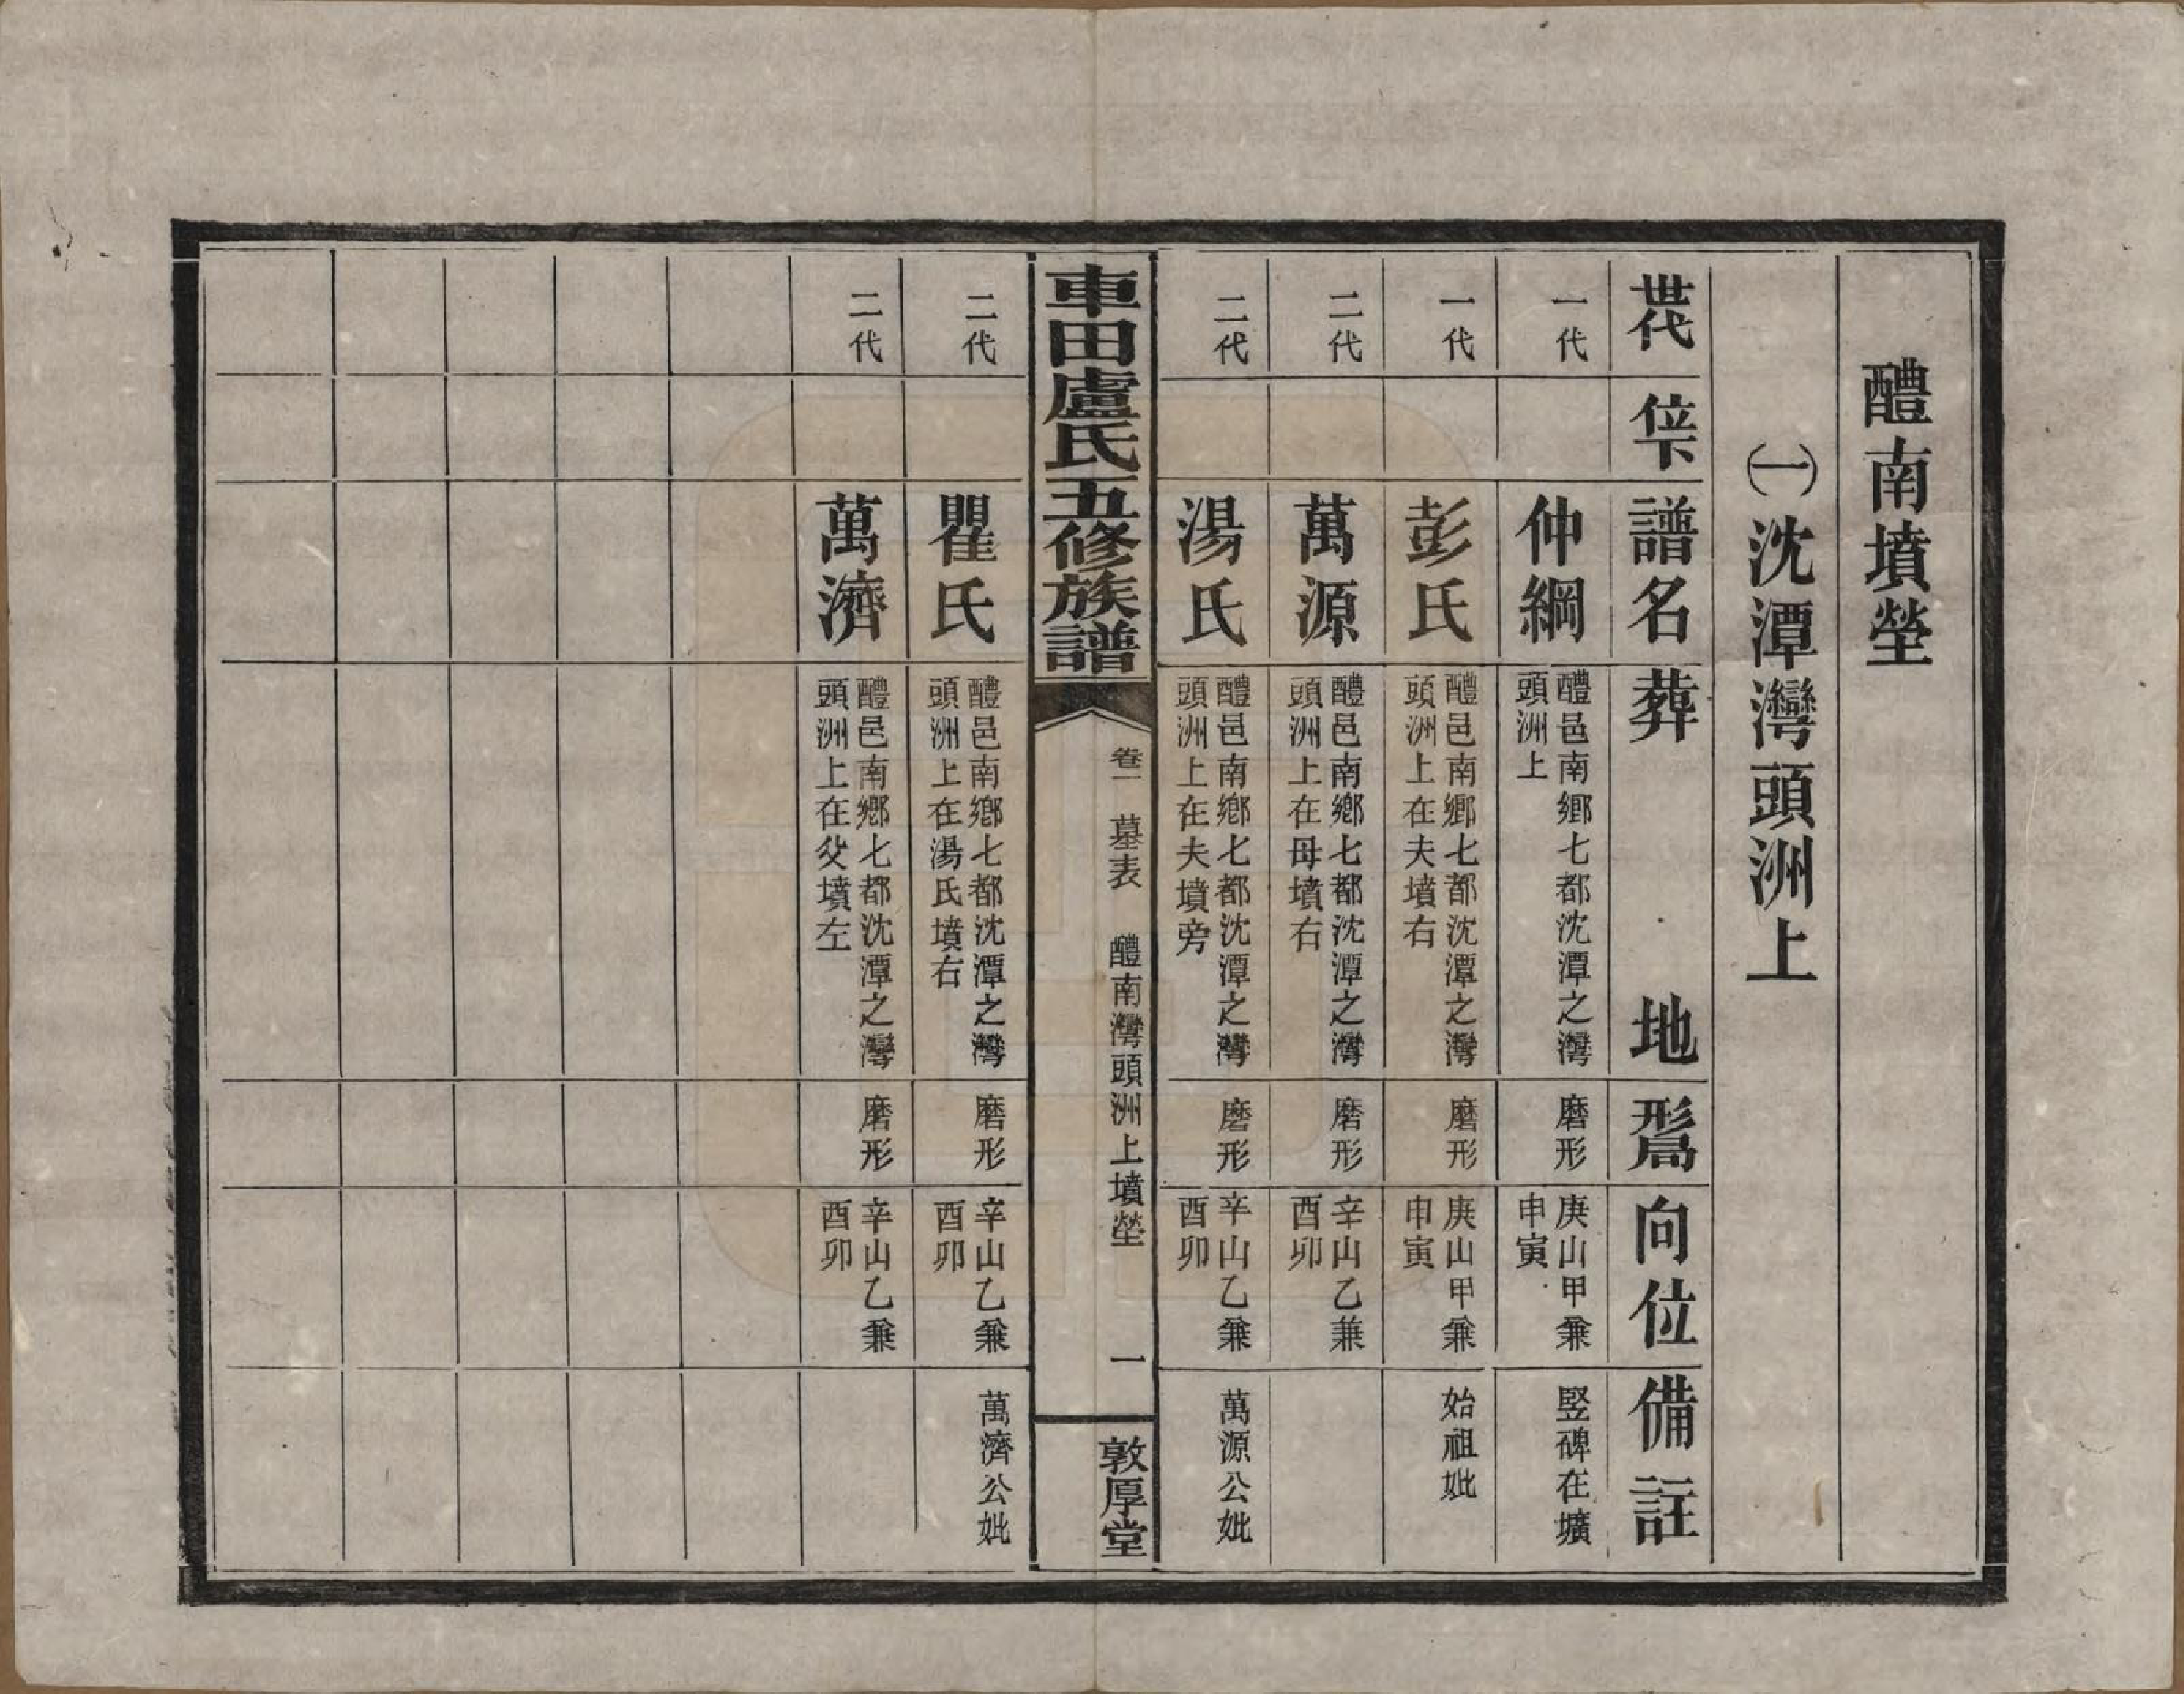 醴南墳塋
㈠沈潭灣頭洲上
世代
位下
譜名
葬地
形局
向位
備註
一代
仲綱
醴邑南鄉七都沈潭之灣
頭洲上
磨形
庚山甲兼
申寅
竪碑在壙
一代
彭氏
醴邑南鄉七都沈潭之灣
頭洲上在夫墳右
磨形
庚山甲兼
申寅
始祖妣
二代
萬源
醴邑南鄉七都沈潭之灣
頭洲上在母墳右
磨形
辛山乙兼
酉卯
二代
湯氏
醴邑南鄉七都沈潭之灣
頭洲上在夫墳旁
磨形
辛山乙兼
酉卯
萬源公妣
車田盧氏五修族譜
卷一 墓表 醴南灣頭洲上墳塋 一
敦厚堂
二代
瞿氏
醴邑南鄉七都沈潭之灣
頭洲上在湯氏墳右
磨形
辛山乙兼
酉卯
萬濟公妣
二代
萬濟
醴邑南鄉七都沈潭之灣
頭洲上在父墳左
磨形
辛山乙兼
酉卯